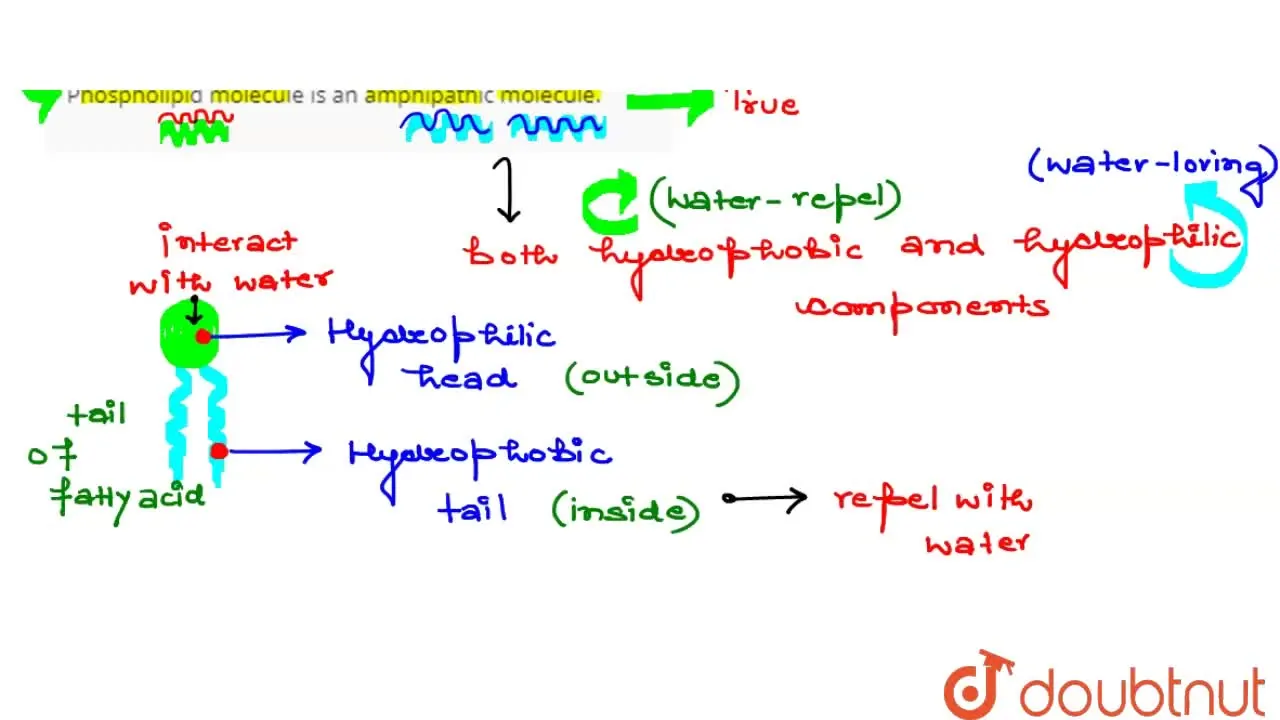 Phospholipid molecule is an amphipathic molecule.
True
(water-loving)
(water-repel)
both hydrophobic and hydrophilic
components
interact
with water
Hydrophilic
head (outside)
tail
of
fatty acid
Hydrophobic
tail (inside)
repel with
water
doubtnut